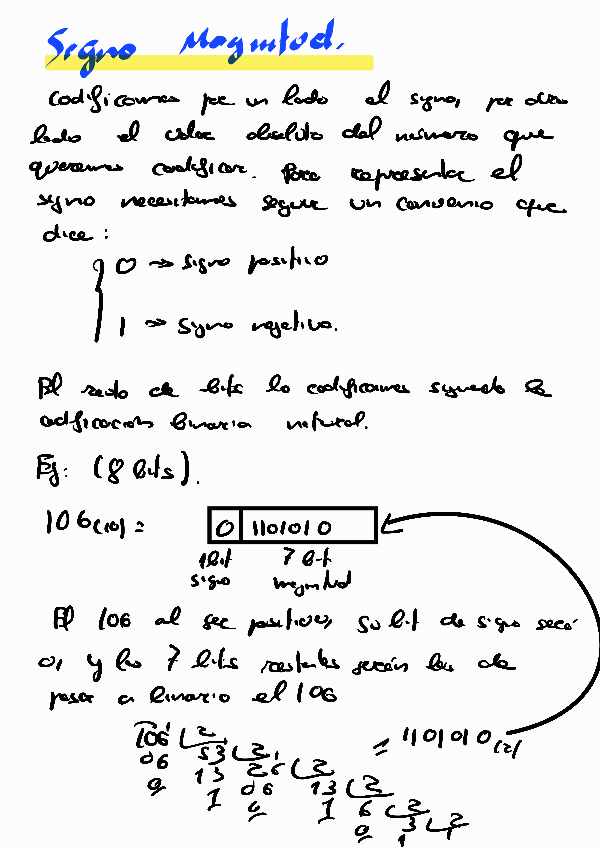 Signo Magnitud.
Codificamos por un lado el signo, por otro
lado el valor absoluto del número que
queremos codificar. Para representar el
signo necesitamos seguir un convenio que
dice:
0 → signo positivo
1 → signo negativo.
El resto de bits lo codificamos siguiendo la
codificación binaria natural.
Ej: (8 bits).
106(10) = 0 1101010
1 bit 7 bit
signo magnitud
El 106 al ser positivo, su bit de signo será
0, y los 7 bits restantes serán los de
pasar a binario el 106
106 2 = 1101010(2)
06 53 2
0 13 26 2
1 06 13 2
0 1 6 2
0 3 2
1 1